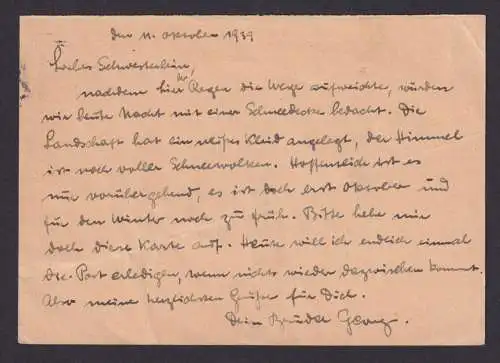 den 11. Oktober 1939
Liebes Schwesterlein,
nachdem hier der Regen die Wege aufweichte, wurden
wir heute Nacht mit einer Schneedecke bedacht. Die
Landschaft hat ein weißes Kleid angelegt, der Himmel
ist noch voller Schneewolken. Hoffentlich ist es
nur vorübergehend, es ist doch erst Oktober und
für den Winter noch zu früh. Bitte hebe mir
doch diese Karte auf. Heute will ich endlich einmal
die Post erledigen, wenn nichts wieder dazwischen kommt.
Also meine herzlichsten Grüße für Dich.
Dein Bruder Georg.